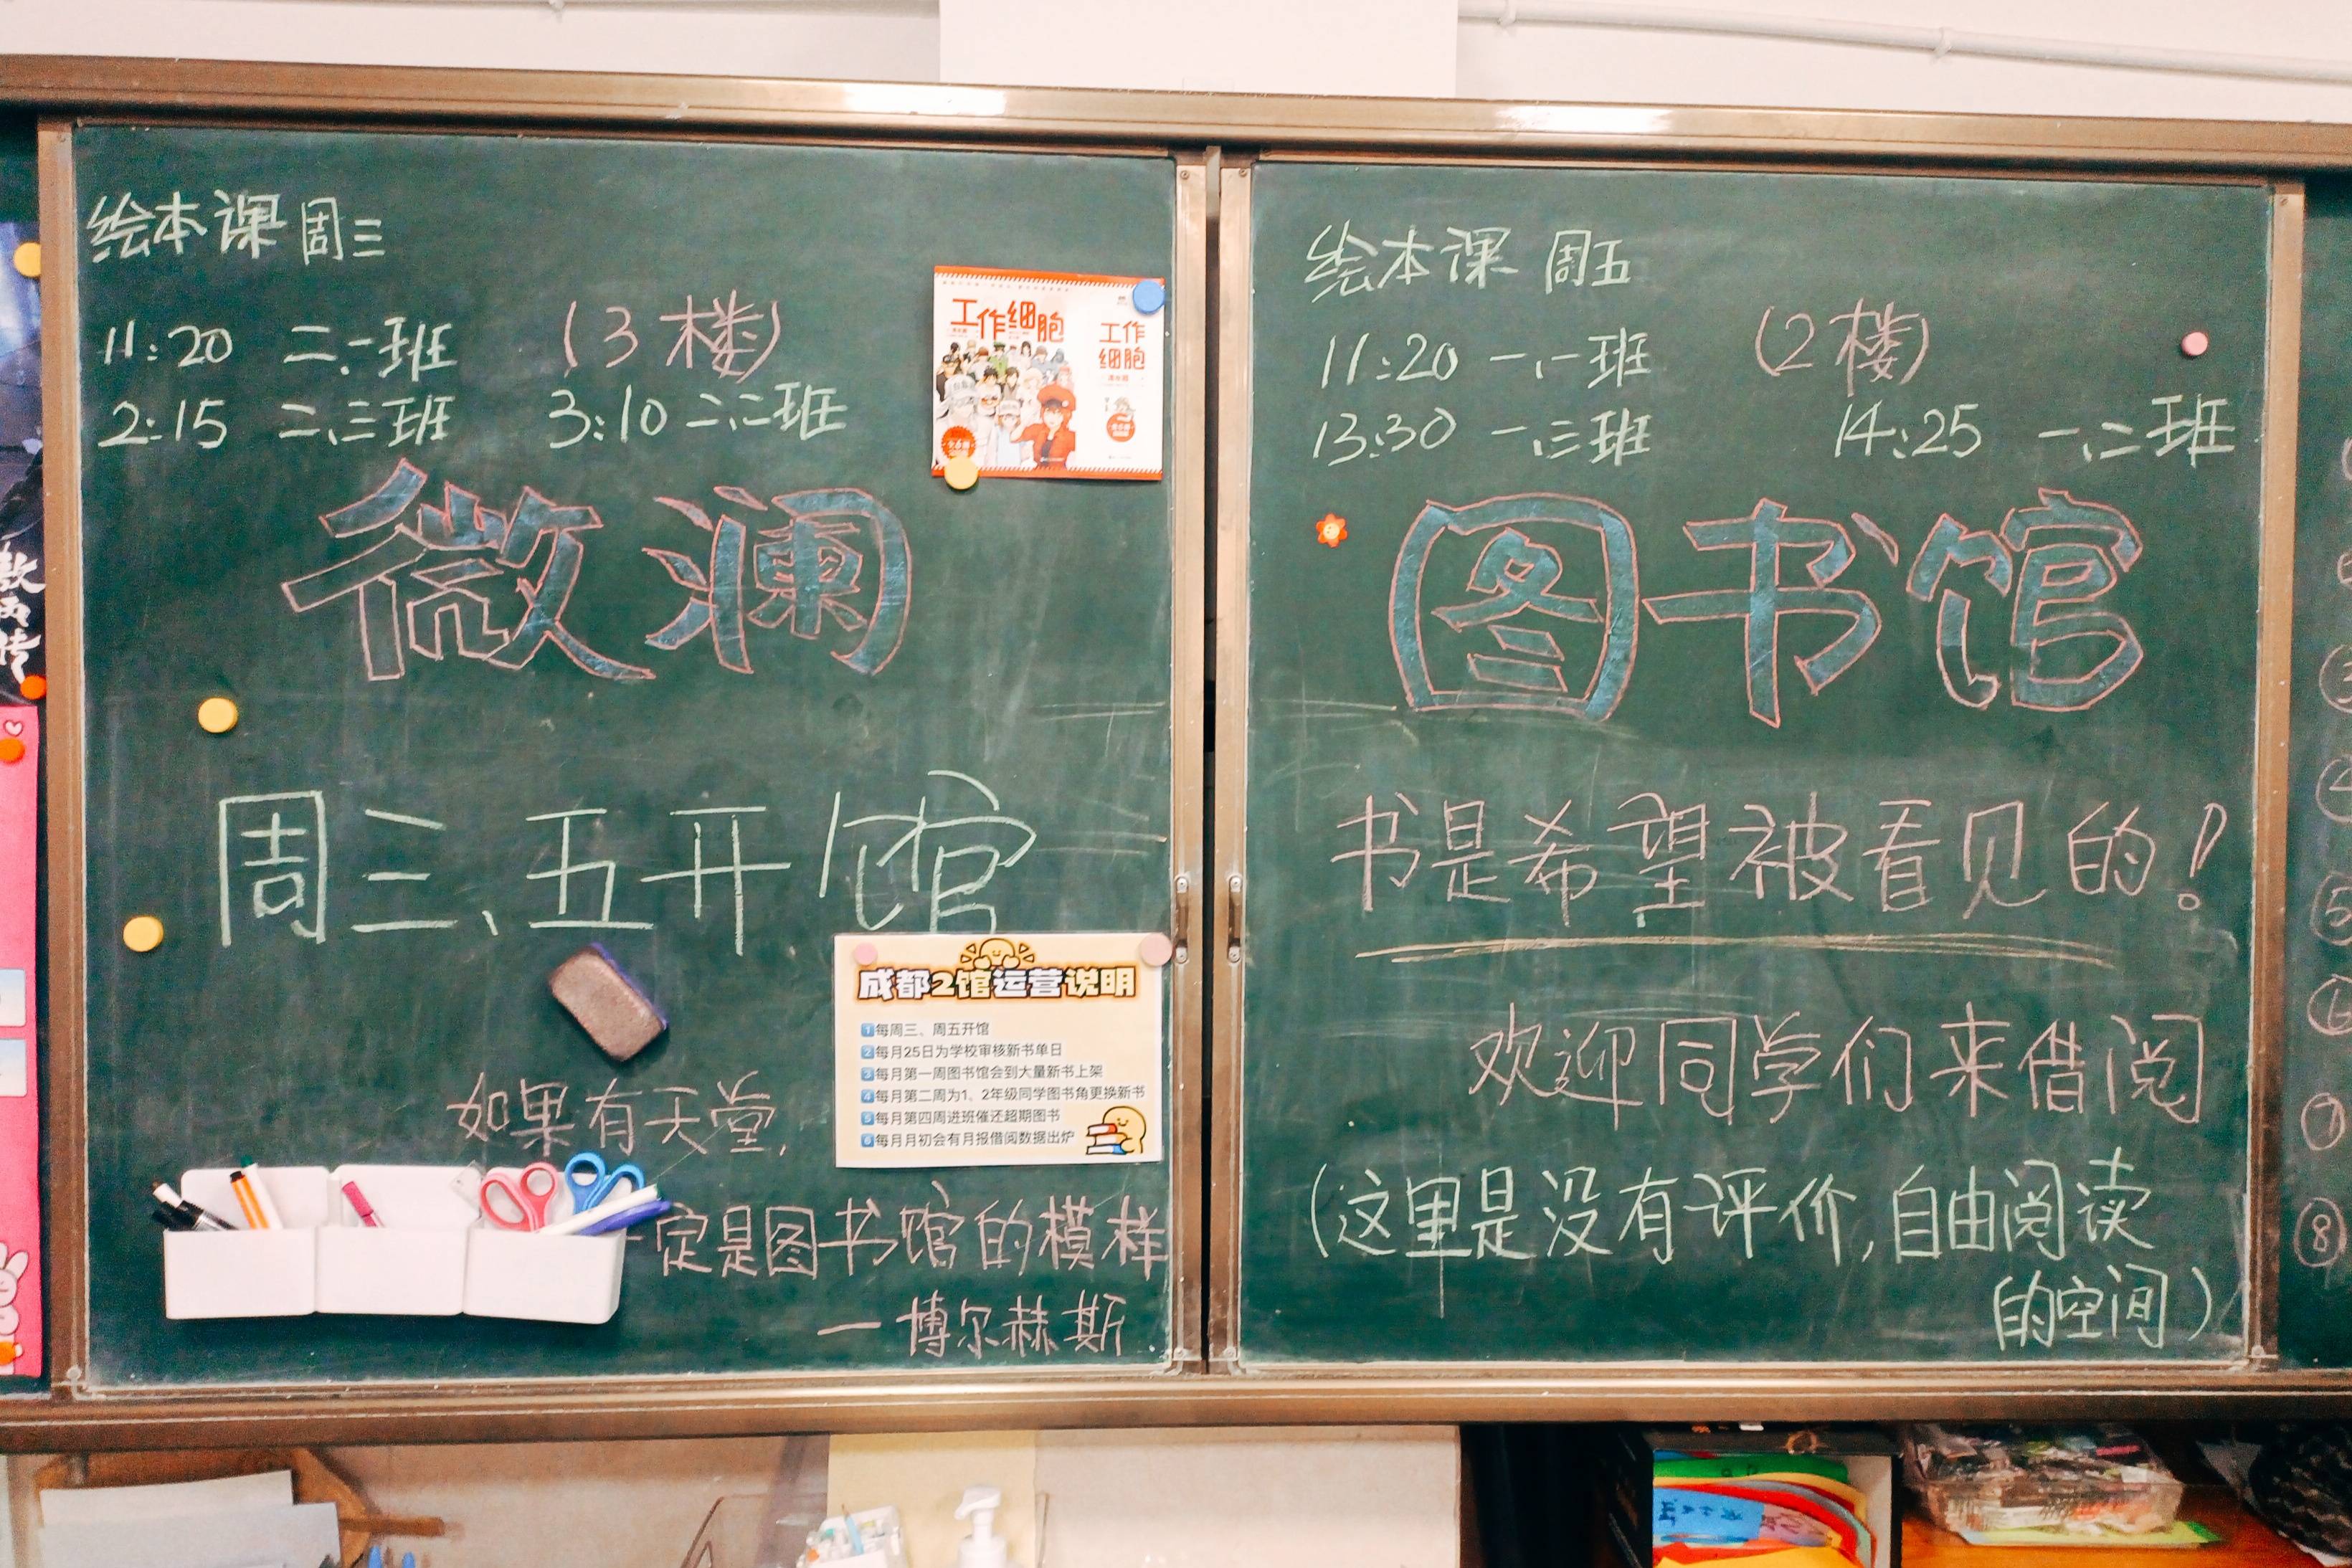 绘本课 周三
11:20 二.一班 (3楼)
2:15 二.三班 3:10 二.二班
工作细胞
工作
细胞
微澜
周三、五开馆
成都2馆运营说明
1 每周三、周五开馆
2 每月25日为学校审核新书单日
3 每月第一周图书馆会到大量新书上架
4 每月第二周为1、2年级同学图书角更换新书
5 每月第四周进班催还超期图书
6 每月月初会有月报借阅数据出炉
如果有天堂,
一定是图书馆的模样
—博尔赫斯.
绘本课 周五
11:20 一.一班 (2楼)
13:30 一.三班 14:25 一.二班
图书馆
书是希望被看见的!
欢迎同学们来借阅
(这里是没有评价,自由阅读
的空间)
⑦
⑧